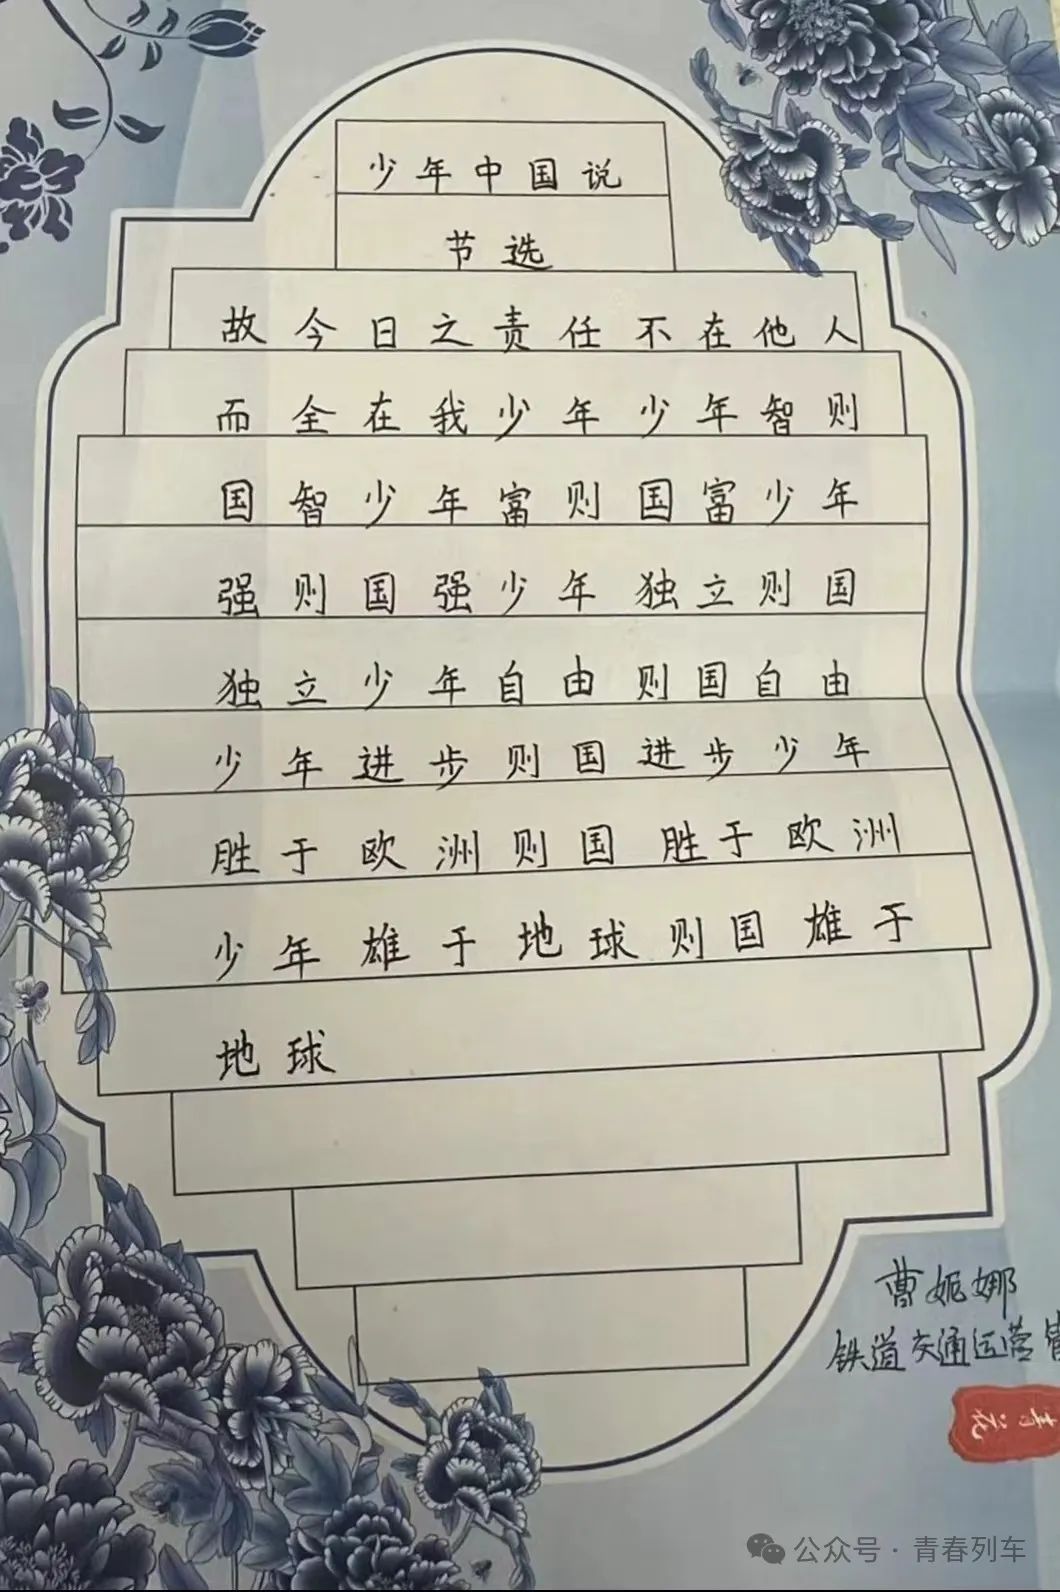 少年中国说
节选
故今日之责任不在他人
而全在我少年少年智则
国智少年富则国富少年
强则国强少年独立则国
独立少年自由则国自由
少年进步则国进步少年
胜于欧洲则国胜于欧洲
少年雄于地球则国雄于
地球
曹妮娜
铁道交通运营管
青花
公众号·青春列车